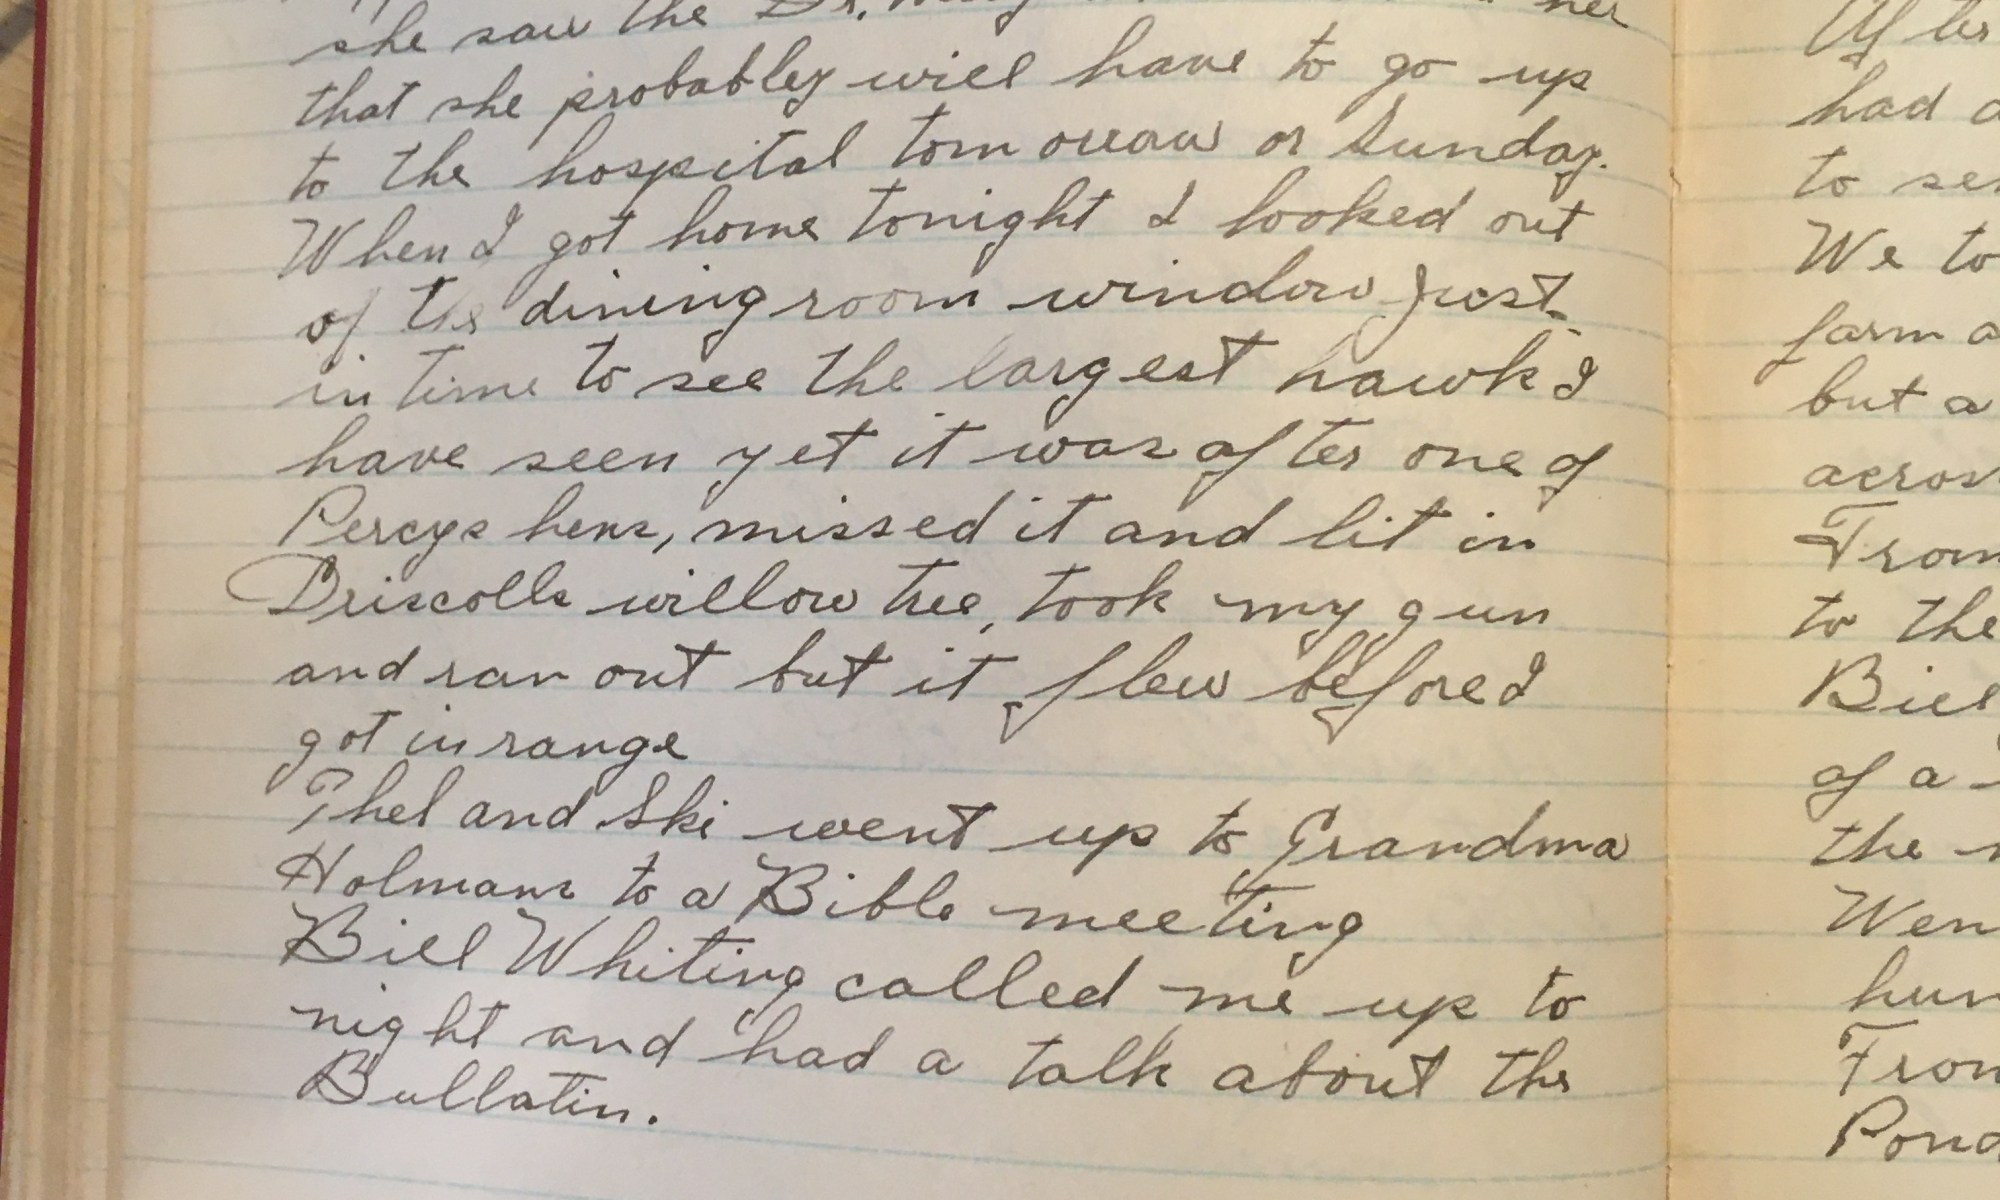 she saw the Dr. her
that she probabley will have to go up
to the hospital tomorraw or Sunday.
When I got home tonight I looked out
of the diningroom window just
in time to see the largest hawk I
have seen yet it was after one of
Percys hens, missed it and lit in
Driscolls willow tree, took my gun
and ran out but it flew before I
got in range
Thel and Ski went up to Grandma
Holmans to a Bible meeting
Bill Whiting called me up to
night and had a talk about the
Bullatin.
After
had
to
We to
farm a
but a
across
From
to the
Bill
of a
the
Wen
hun
From
Pond